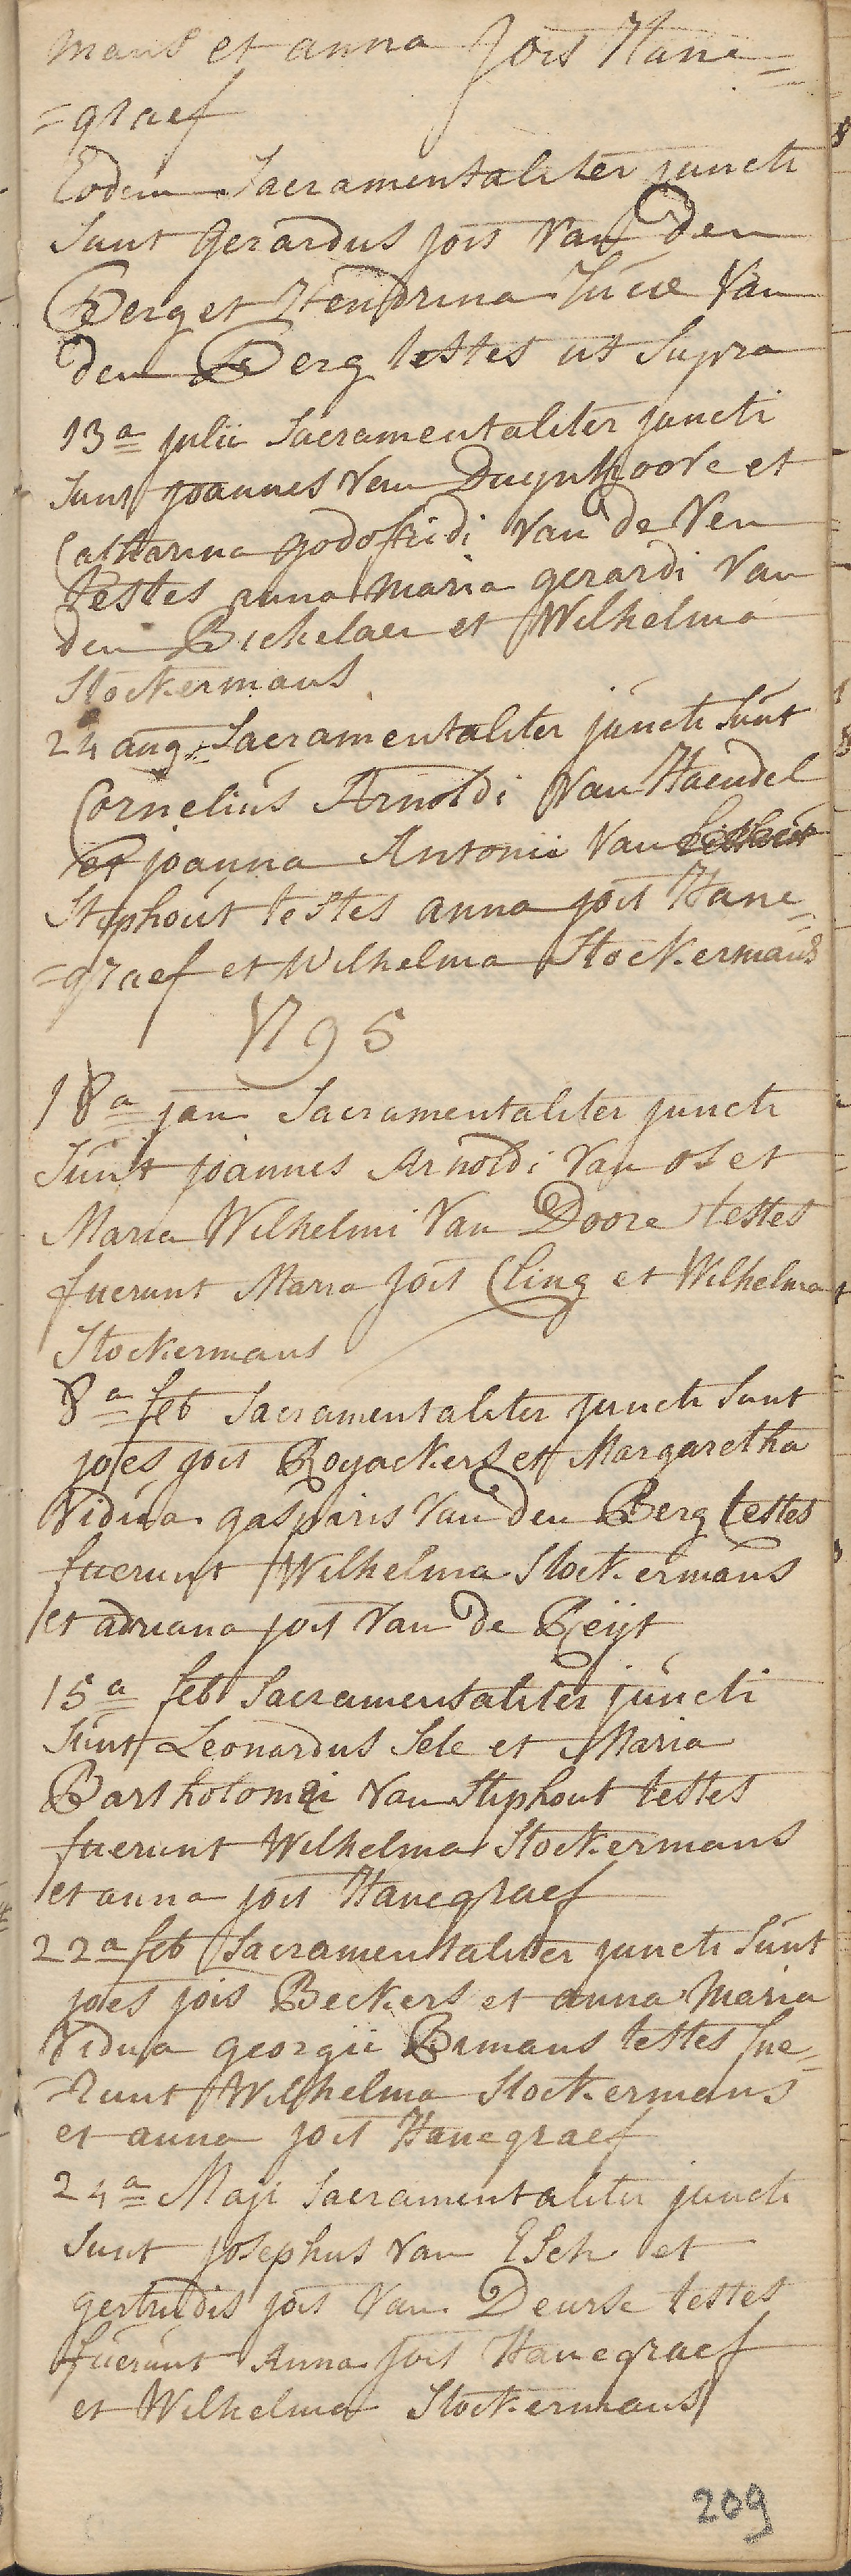 mans et anna Jois Hane=
=graef
Eodem Sacramentaliter juncti
Sunt Gerardus jois Van Den
Berg et Hendrina Van
den Berg testes ut Supra
13a julii Sacramentaliter juncti
Sunt joannes Van Duynhoove et
Catharina godofridi Van de Ven
testes anna Maria gerardi Van
den Bichelaer et Wilhelma
Stockermans
24 aug. Sacramentaliter juncti Sunt
Cornelius Arnoldi Van Haendel
et joanna Antonii Van
Stiphout testes anna jois Hane=
=graef et Wilhelma Stockermans
1795
18a jan Sacramentaliter juncti
Sunt joannes Arnoldi Van os et
Maria Wilhelmi Van Doore testes
fuerunt Maria Jois Cling et Wilhelma
Stockermans
8a feb Sacramentaliter juncti Sunt
joes jois Royackers et Margaretha
Vidua gasparis Van den Berg testes
fuerunt Wilhelma Stockermans
et adriana jois Van de Reijt
15a feb Sacramentaliter juncti
Sunt Leonardus Sele et Maria
Bartholomei Van Stiphout testes
fuerunt Wilhelma Stockermans
et anna jois Hanegraef
22a feb Sacramentaliter juncti Sunt
joes jois Beckers et anna Maria
Vidua georgii testes fue=
=runt Wilhelma Stockermans
et anna jois Hanegraef
24a Maji Sacramentaliter juncti
Sunt josephus Van Esch et
gertrudis jois Van Deurse testes
fuerunt Anna Jois Hanegraef
et Wilhelma Stockermans
209